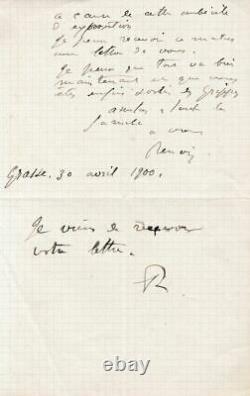 à cause de cette
d'exposition
Je pense recevoir ce matin
une lettre de vous.
Je pense que tout va bien
maintenant et que vous
êtes enfin sortis des grippes
amitiés à toute la
famille
à vous
Renoir
Grasse. 30 avril 1900.
Je viens de recevoir
votre lettre.
R
© ebay